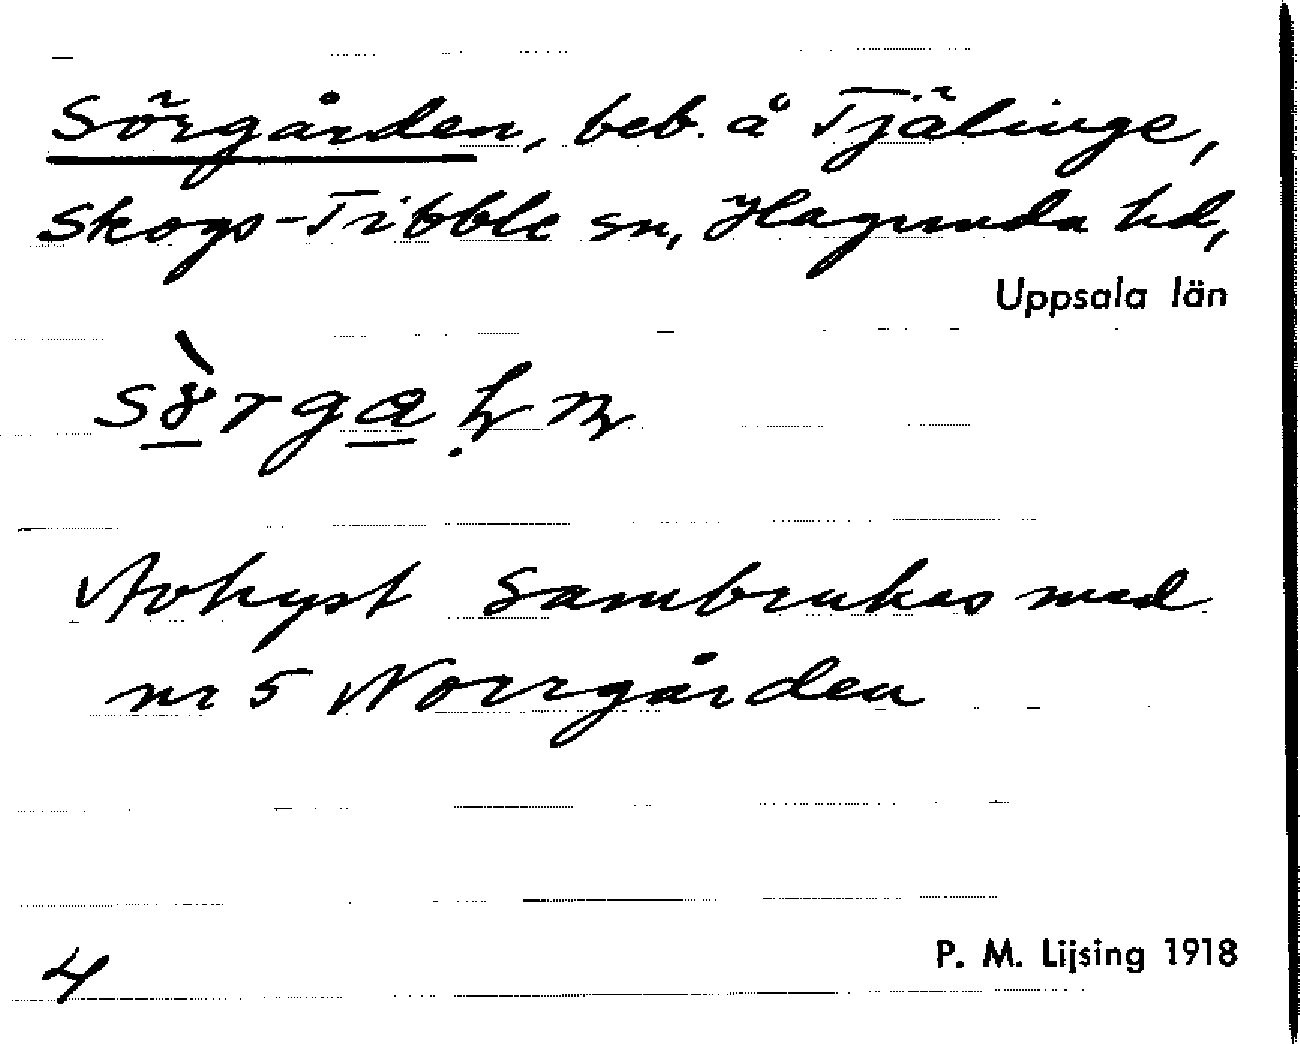 Sörgården, beb. å Tjälinge,
Skogs-Tibble sn, Hagunda hd,
Uppsala län
Avhyst Sambrukas med
nr 5 Norrgården
4
P. M. Lijsing 1918